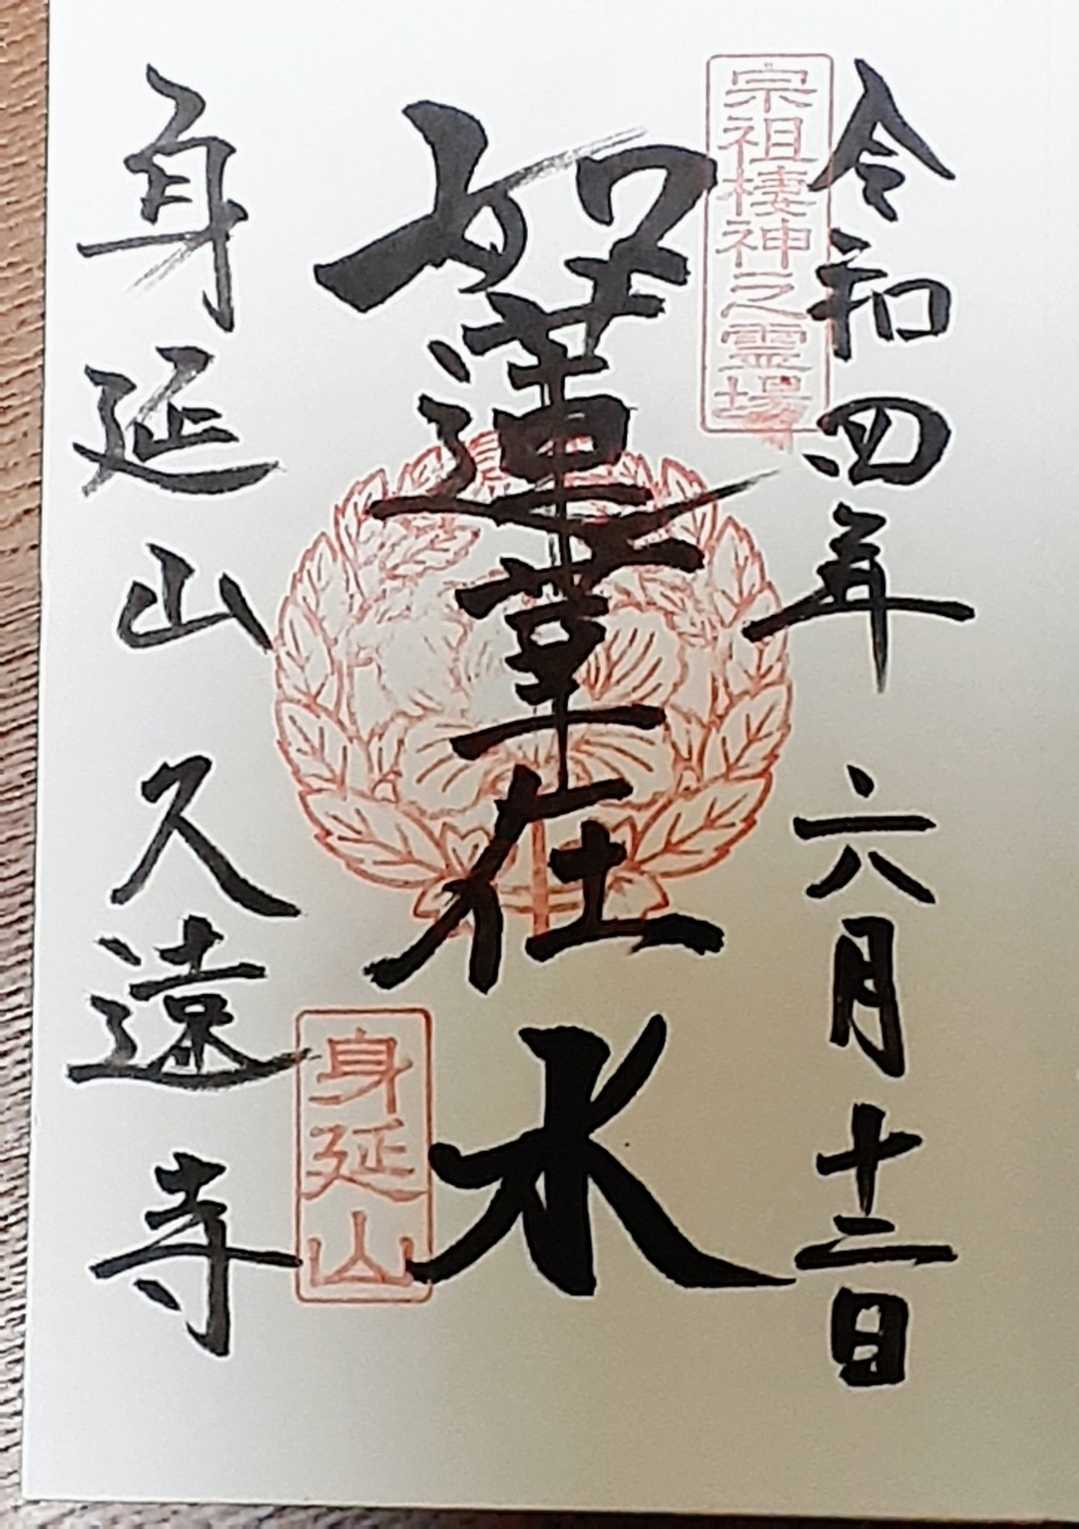 令和四年 六月十二日
宗祖棲神之霊場
如蓮華在水
身延山
身延山 久遠寺